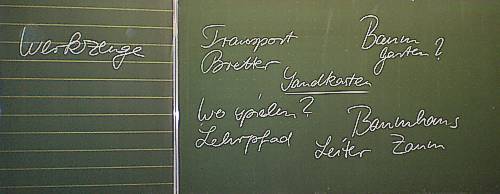 Werkzeuge
Transport
Bretter
Baum
garten?
Sandkasten
Wo spielen?
Lehrpfad
Baumhaus
Leiter Zaun